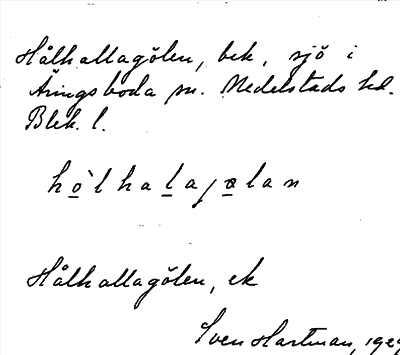 Hålhallagölen, bek, sjö i
Äringsboda sn. Medelstads hd.
Blek. l.
hò̲lhal̲ajə̲lan
Hålhallagölen, ek
Sven Hartman, 192